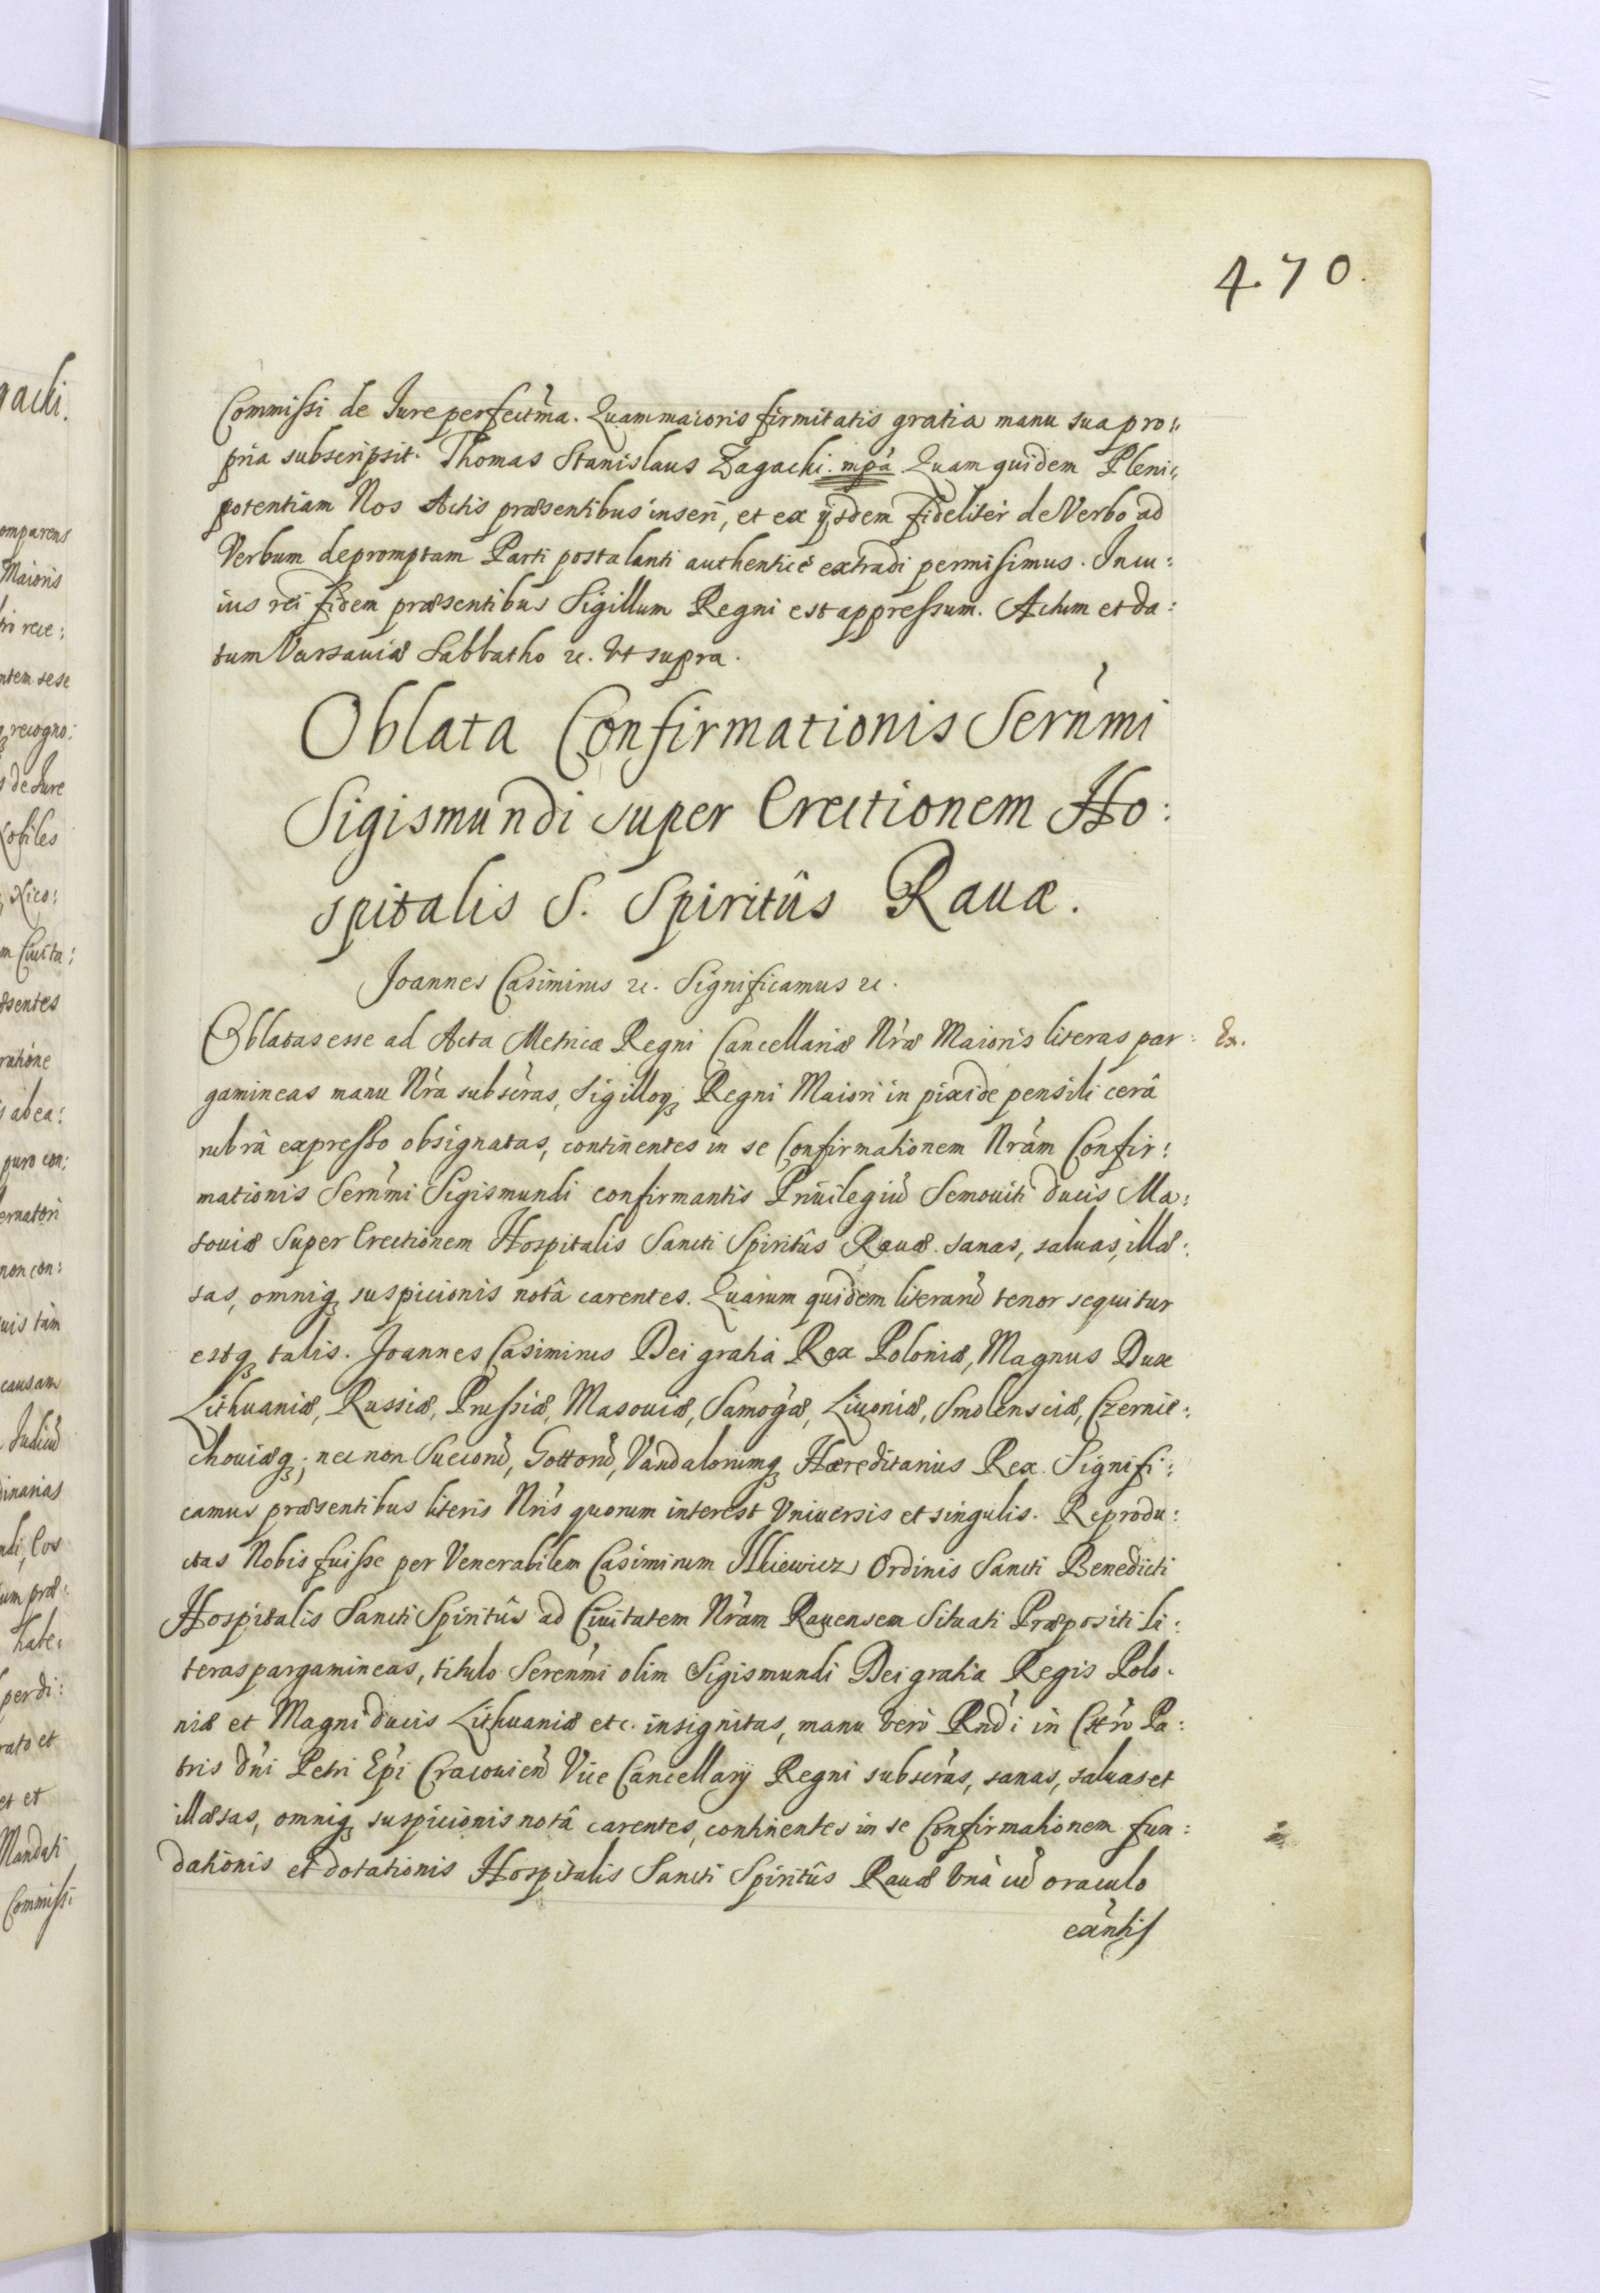 4.70.
Commissi de Jure perfectm̃a. Quam maioris firmitatis gratia manu sua pro:
pria subscripsit. Thomas Stanislaus Zagacki. mpá Quam quidem Pleni:
potentiam Nos Actis præsentibus inseri, et ex ijsdem fideliter de Verbo ad
Verbum depromptam Parti postulanti authenticè extradi permisimus. In cu:
ius rei fidem præsentibus Sigillum Regni est appressum. Actum et da:
tum Varsauiæ Sabbatho &c. Vt supra.
Oblata Confirmationis Serñmi
Sigismundi super Erectionem Ho:
spitalis S. Spiritûs Rauæ.
Joannes Casimirus &c. Significamus &c.
Oblatas esse ad Acta Metricæ Regni Cancellariæ Nr̃æ Maioris literas par: Ex.
gamineas manu Nr̃a subscr̃as, Sigilloq₃ Regni Maiori in pixide pensili cerâ
rubrâ expresso obsignatas, continentes in se Confirmationem Nr̃am Confir:
mationis Serñmi Sigismundi confirmantis Priuilegiũ Semouiti ducis Ma:
souiæ super Erectionem Hospitalis Sancti Spiritûs Rauæ. sanas, saluas, illæ:
sas, omniq₃ suspicionis notâ carentes. Quarum quidem literarũ tenor sequitur
estq₃ talis. Joannes Casimirus Dei gratia Rex Poloniæ, Magnus Dux
Lithuaniæ, Russiæ, Prussiæ, Masouiæ, Samog̃æ, Liuoniæ, Smolensciæ, Czernie:
chouiæq₃; nec non Suecorũ, Gottorũ, Vandalorumq₃ Hæreditarius Rex. Signifi:
camus præsentibus literis Nr̃is quorum interest Vniuersis et singulis. Reprodu:
ctas Nobis fuisse per Venerabilem Casimirum Ilkiewicz Ordinis Sancti Benedicti
Hospitalis Sancti Spiritûs ad Ciuitatem Nr̃am Rauensem Situati Præpositi li:
teras pargamineas, titulo Serenm̃i olim Sigismundi Dei gratia Regis Polo:
niæ et Magni ducis Lithuaniæ etc. insignitas, manu verò Rnd̃i in Chr̃o Pa:
tris dñi Petri Ep̃i Cracouieñ Vice Cancellarij Regni subscr̃as, sanas, saluas et
illæsas, omniq₃ suspicionis notâ carentes, continentes in se Confirmationem fun:
dationis et dotationis Hospitalis Sancti Spiritûs Rauæ vnà cũ oraculo
eañtis